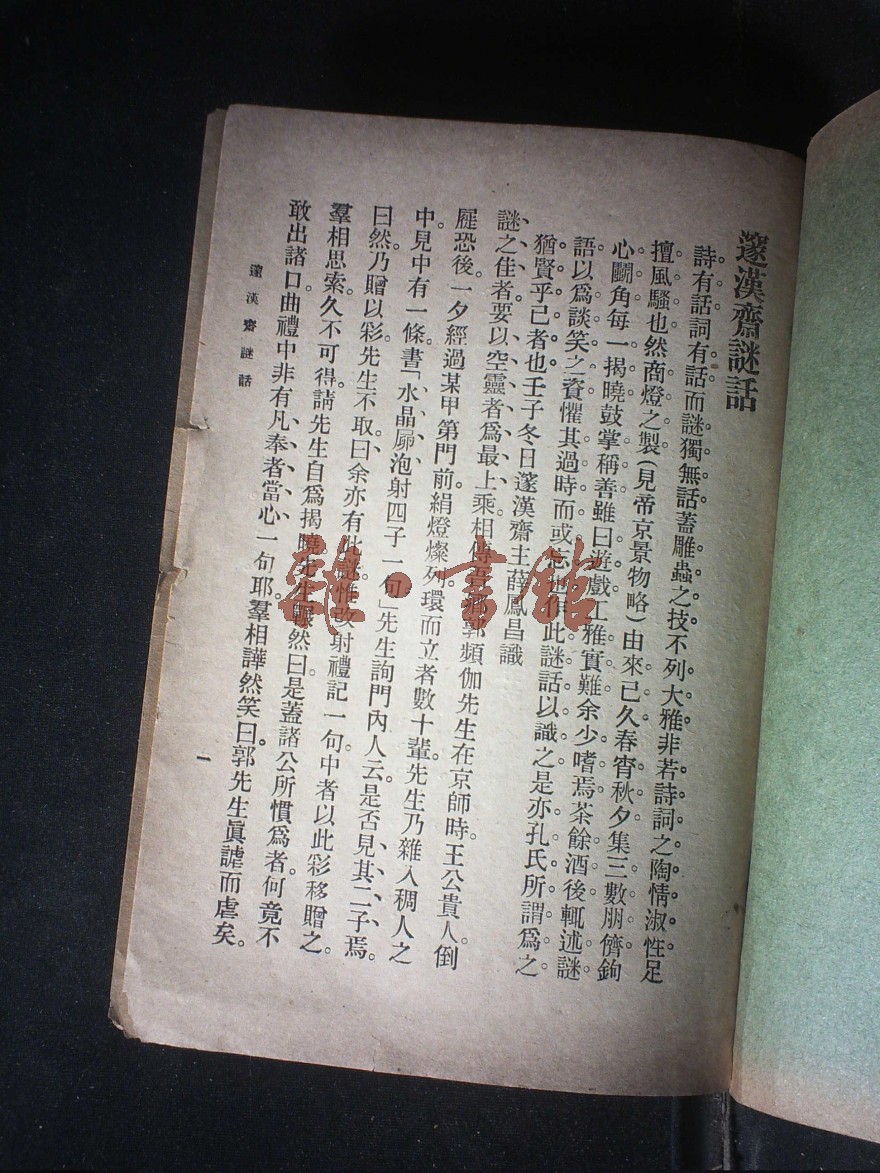 邃漢齋謎話
詩有話詞有話而謎獨無話蓋雕蟲之技不列大雅非若詩詞之陶情淑性足
擅風騷也然商燈之製(見帝京景物略)由來已久春宵秋夕集三數朋儕鉤
心鬬角每一揭曉鼓掌稱善雖曰遊戲工雅實難余少嗜焉茶餘酒後輒述謎
語以爲談笑之資懼其過時而或忘也作此謎話以識之是亦孔氏所謂爲之
猶賢乎已者也壬子冬日邃漢齋主薛鳳昌識
謎之佳者要以空靈者爲最上乘相傳吾鄉郭頻伽先生在京師時。王公貴人倒
屣恐後。一夕經過某甲第門前。絹燈燦列。環而立者數十輩。先生乃雜入稠人之
中。見中有一條。書「水晶屌泡射四子一句」先生詢門內人云。是否見其二子焉。
曰然。乃贈以彩。先生不取。曰余亦有此謎。惟改射禮記一句。中者以此彩移贈之。
羣相思索。久不可得。請先生自爲揭曉。先生囅然曰。是蓋諸公所慣爲者。何竟不
敢出諸口。曲禮中非有凡奉者當心一句耶。羣相譁然。笑曰。郭先生眞謔而虐矣。
邃漢齋謎話
一
雜·書館